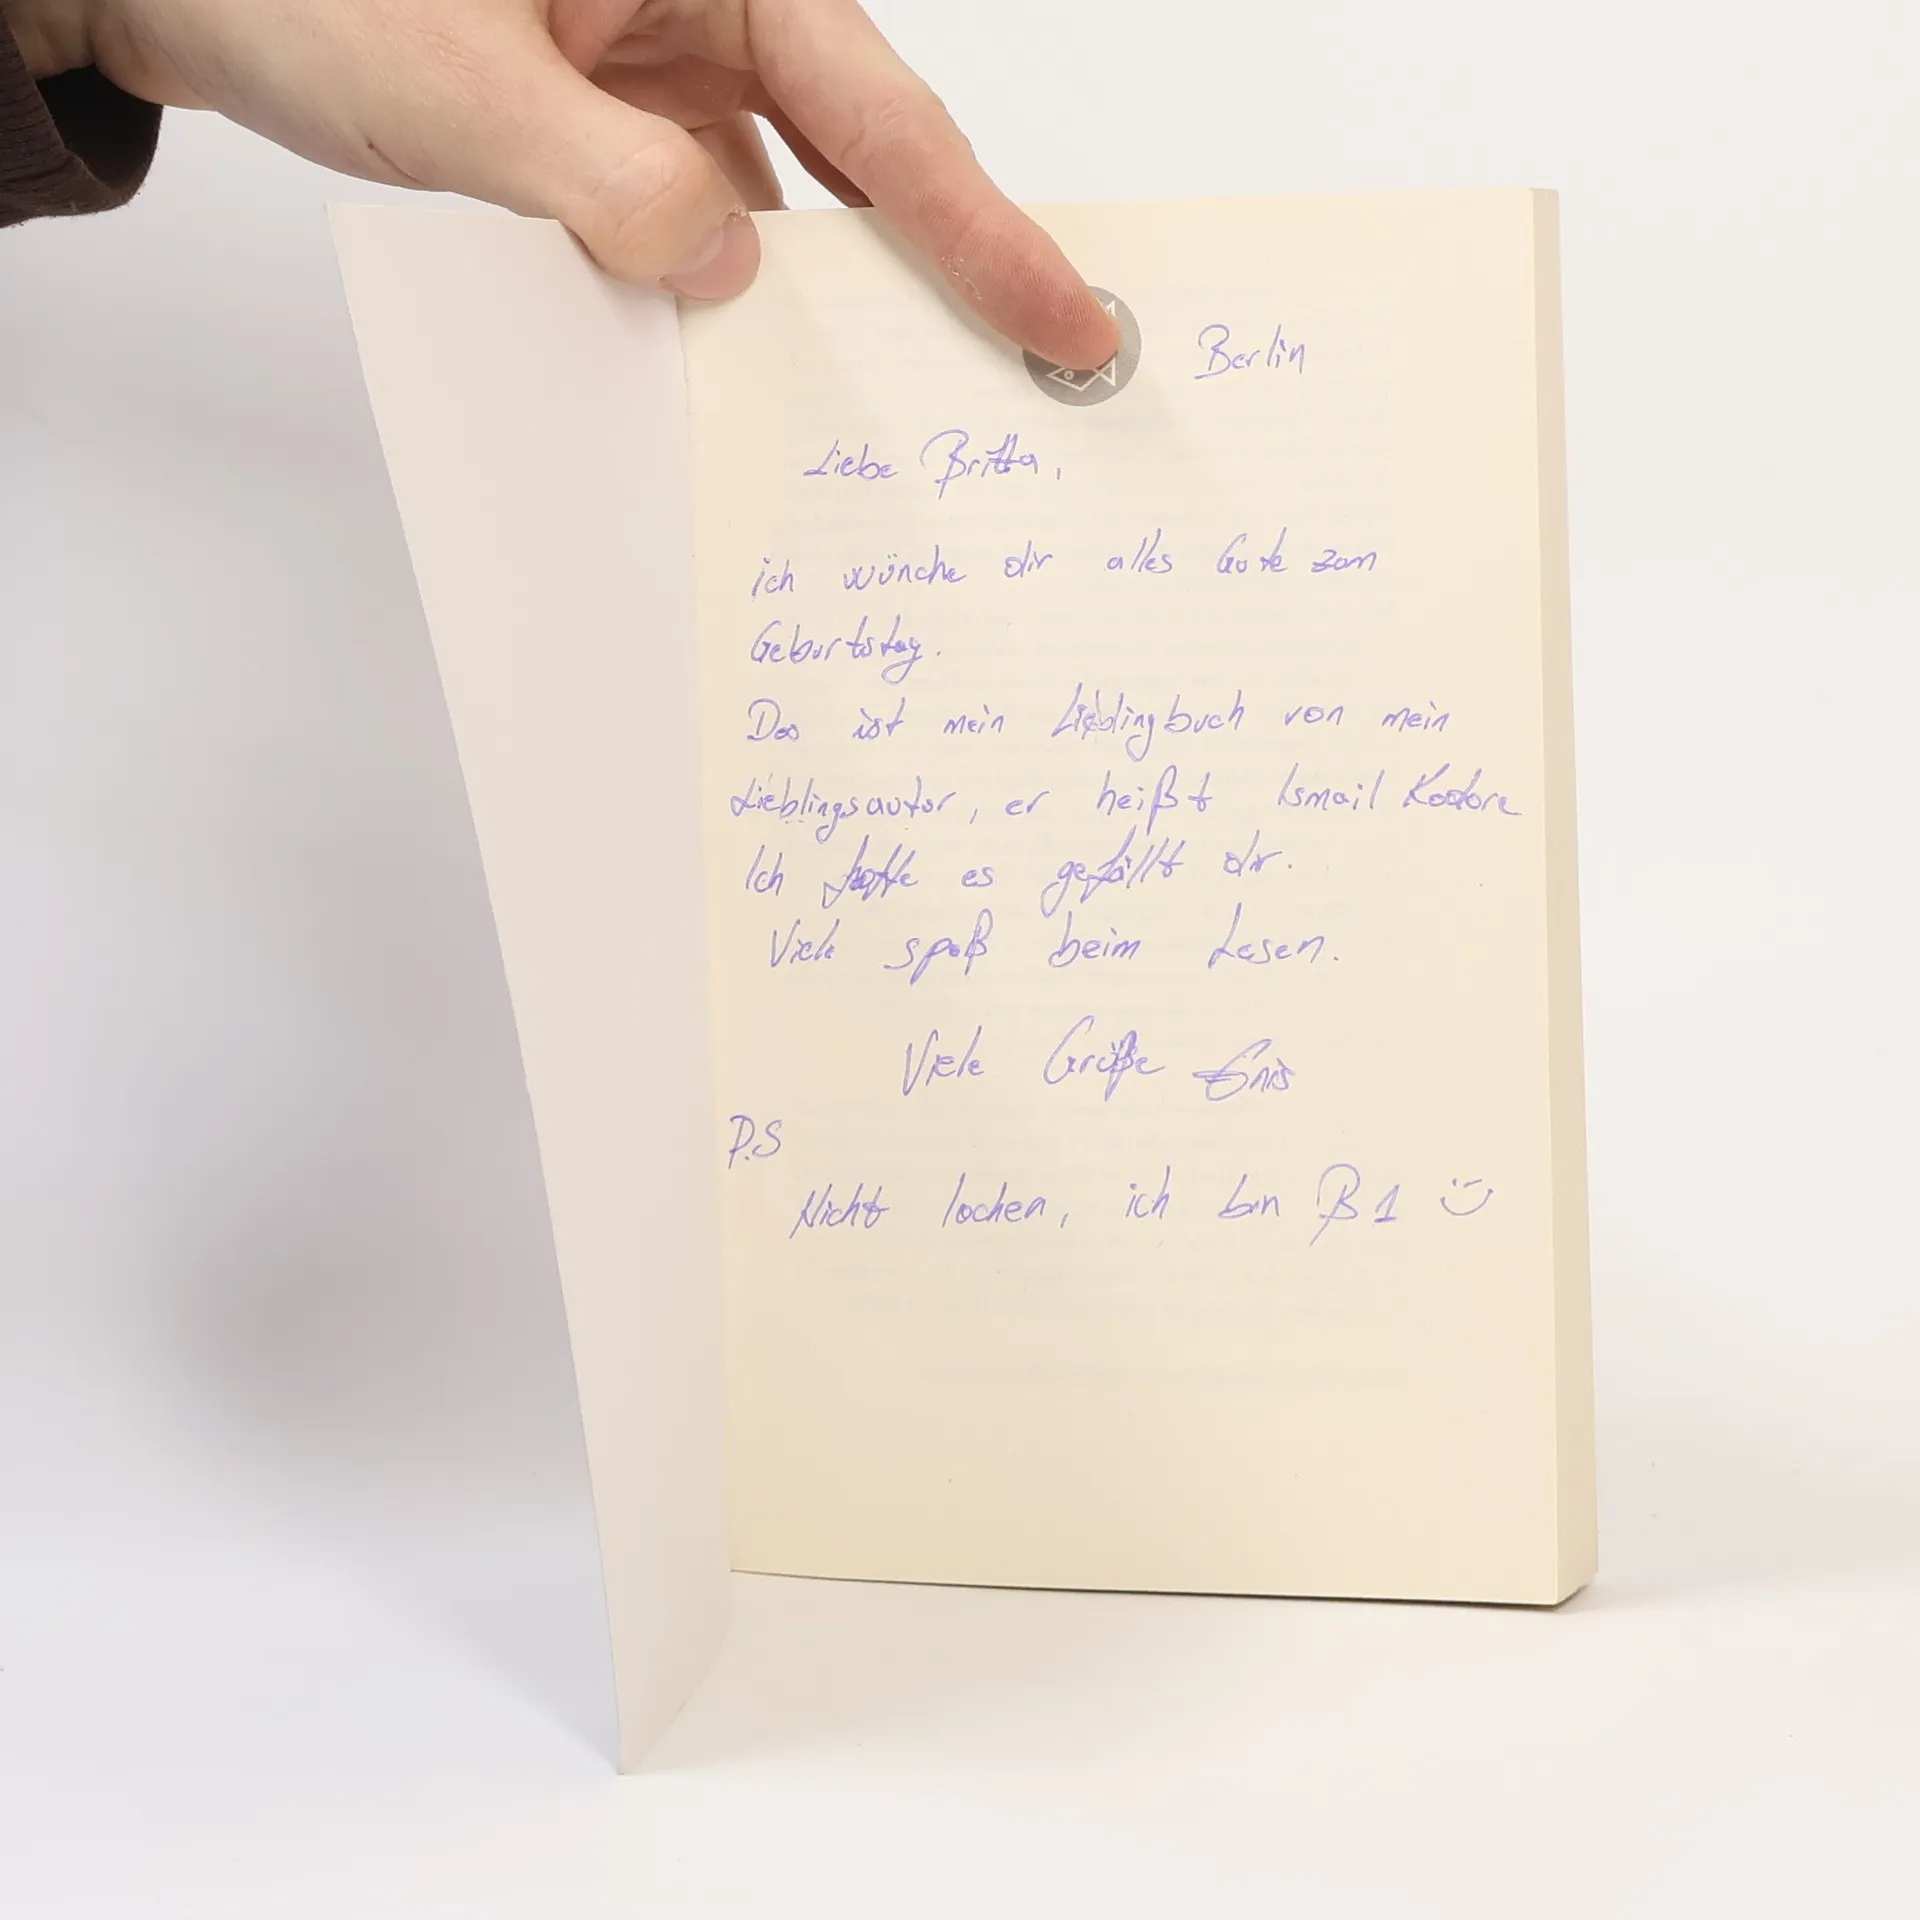 Berlin
Liebe Britta,
ich wünche dir alles Gute zum
Geburtstag.
Das ist mein Lieblingbuch von mein
Lieblingsautor, er heißt Ismail Kadare
Ich hoffe es gefällt dir.
Viele spaß beim Lesen.
Viele Grüße Enis
P.S
Nicht lachen, ich bin B1